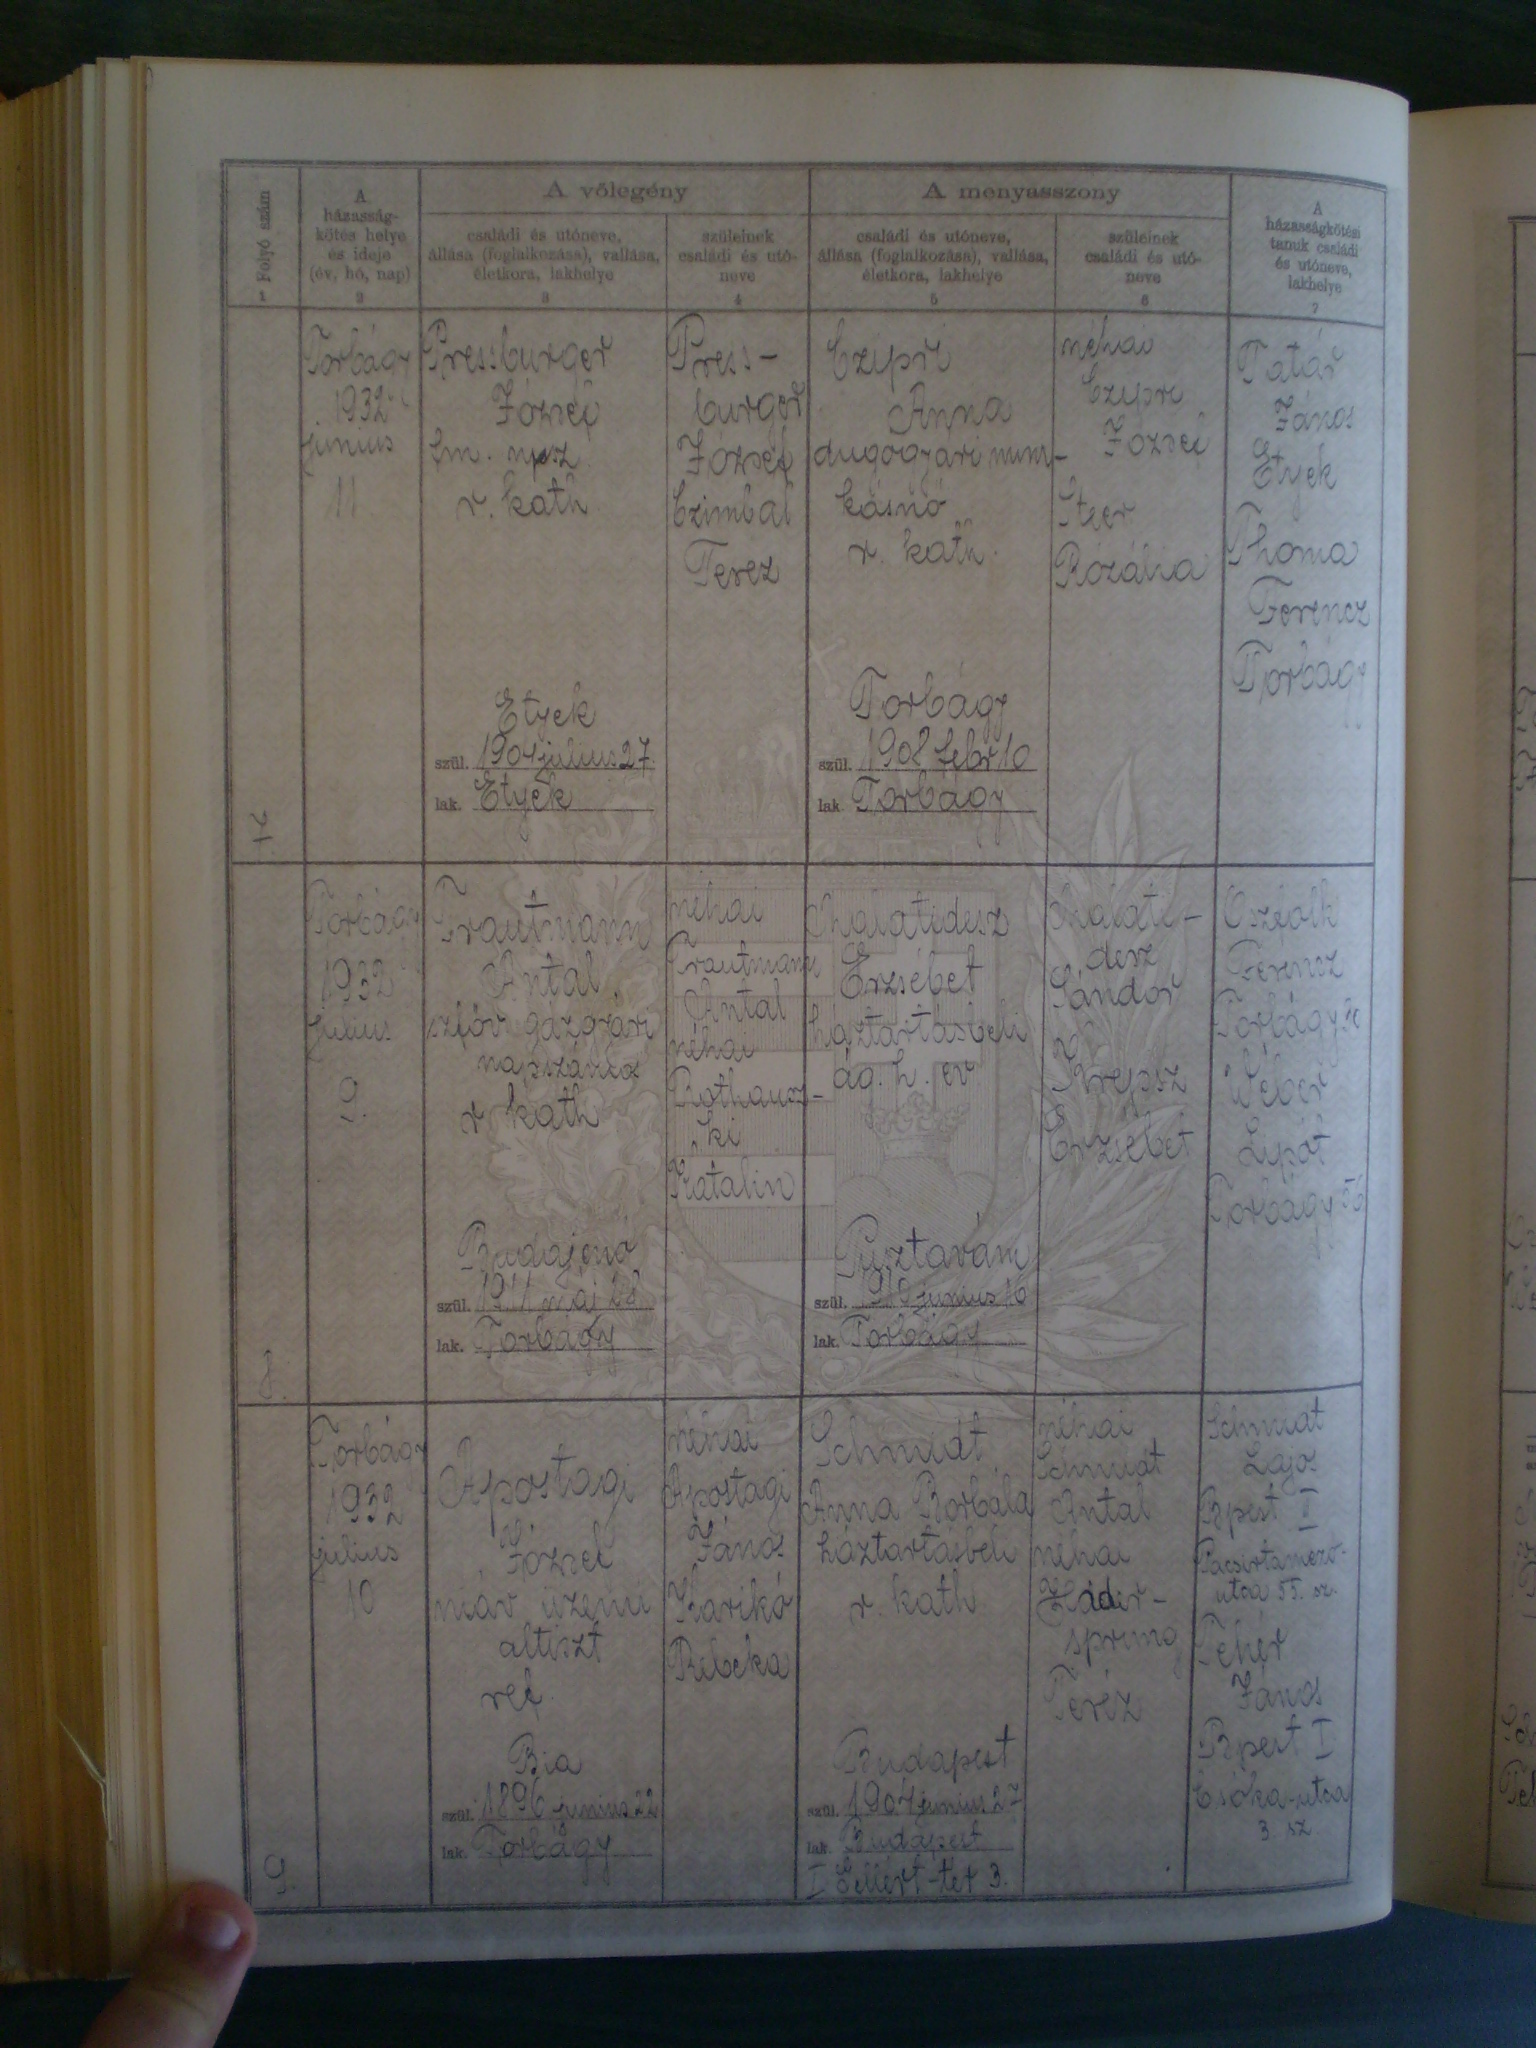 Folyó szám
1
A
házasság-
kötés helye
és ideje
(év, hó, nap)
2
A vőlegény
családi és utóneve,
állása (foglalkozása), vallása,
életkora, lakhelye
3
szüleinek
családi és utó-
neve
4
A menyasszony
családi és utóneve,
állása (foglalkozása), vallása,
életkora, lakhelye
5
szüleinek
családi és utó-
neve
6
A
házasságkötési
tanuk családi
és utóneve,
lakhelye
7
7.
Torbágy
1932
junius
11
Pressburger
József
fm. npsz
r. kath
Etyek
szül. 1904 julius 27.
lak. Etyek
Press-
burger
József
Czimbal
Terez
Czipri
Anna
dugógyári mun-
kásnő
r. kath.
Torbágy
szül. 1908 febr 10
lak Torbágy
néhai
Czipri
József
Steer
Rozália
Tatár
János
Etyek
Thoma
Ferencz
Torbágy
8.
Torbágy
1932
julius
9.
Trautmann
Antal
szföv. gázgyári
napszámos
r kath
Budajenő
szül. 1911 máj 28
lak. Torbágy
néhai
Trautmann
Antal
néhai
Rothausz-
ki
Katalin
Chalatidesz
Erzsébet
háztartásbeli
ág. h. ev
Pusztavám
szül. 1910 junius 16
lak. Torbágy
Chalati-
desz
Sándor
Krepsz
Erzsébet
Ferencz
Torbágy
Wéber
Lipót
Torbágy 56
9.
Torbágy
1932
julius
10
Apostagi
József
máv üzemi
altiszt
ref.
Bia
szül. 1896 junius 22
lak. Torbágy
néhai
Apostagi
János
Karikó
Rebeka
Schmidt
Anna Borbála
háztartásbeli
r. kath
Budapest
szül. 1904 junius 27
lak. Budapest
I Gellért-tér 3.
néhai
Schmidt
Antal
néhai
Hádir-
sprung
Teréz
Schmidt
Lajos
Bpest I
Pacsirtamező-
utca 55. sz.
Fehér
János
Bpest I
Csóka-utca
3. sz